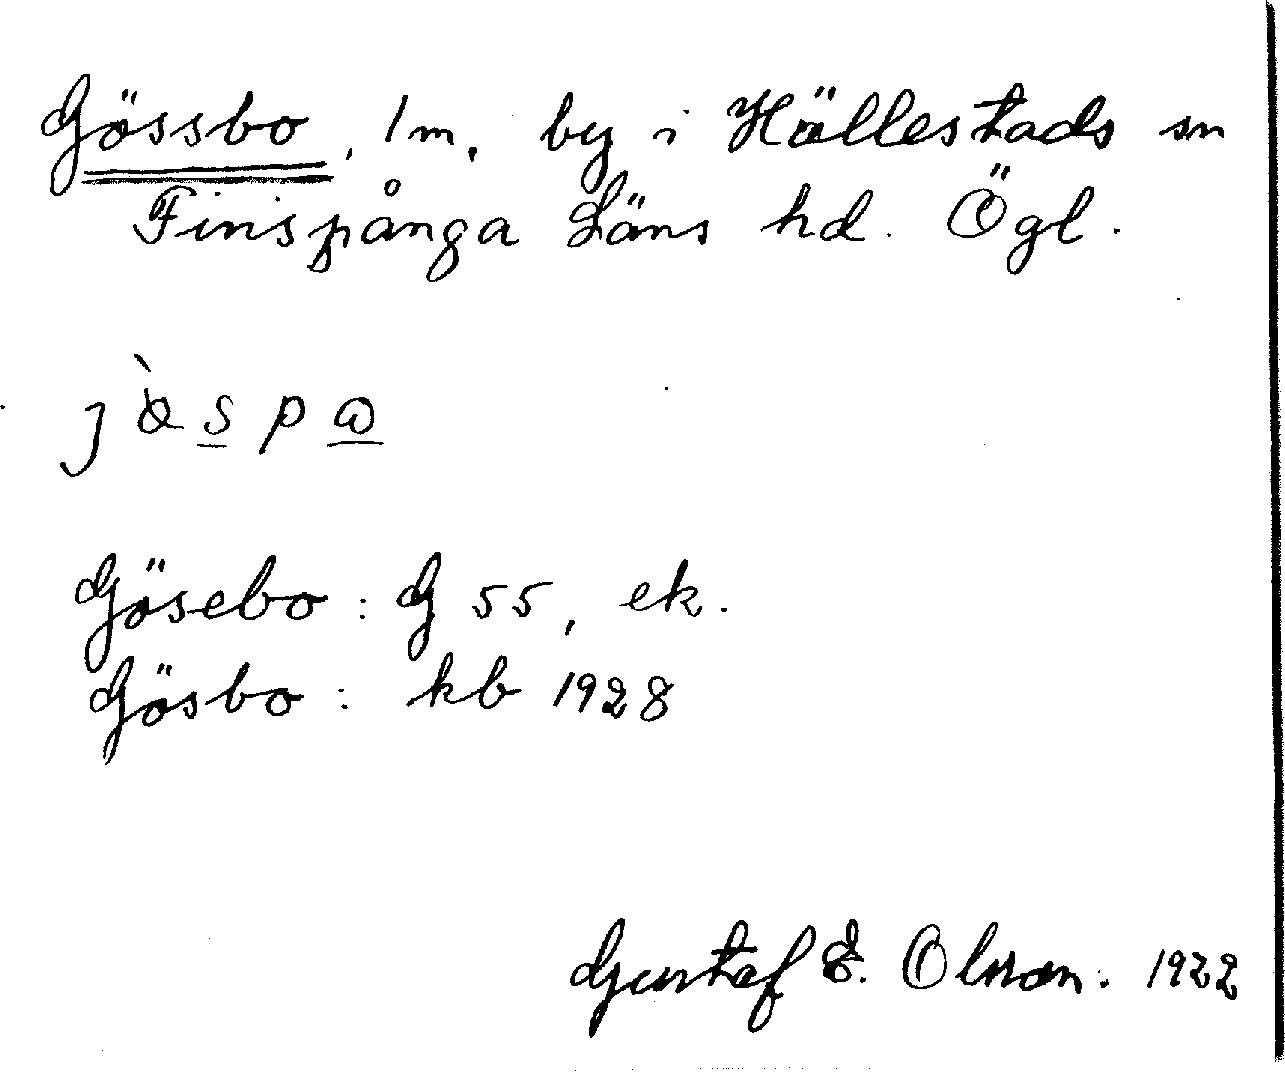 Gössbo, 1m. by i Hällestads sn
Finspånga Läns hd. Ögl.
Gösebo: G 55, ek.
Gösbo: kb 1928
Gustaf E. Olsson. 1922